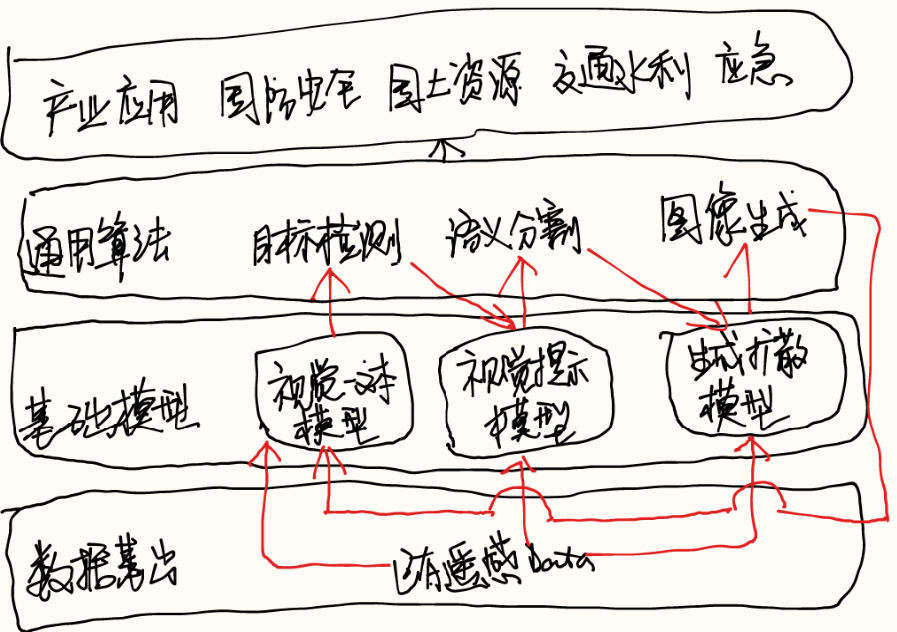 产业应用 国防安全 国土资源 交通水利 应急
通用算法 目标检测 语义分割 图像生成
基础模型
视觉-文本
模型
视觉提示
模型
生成扩散
模型
数据基础 已有遥感Data